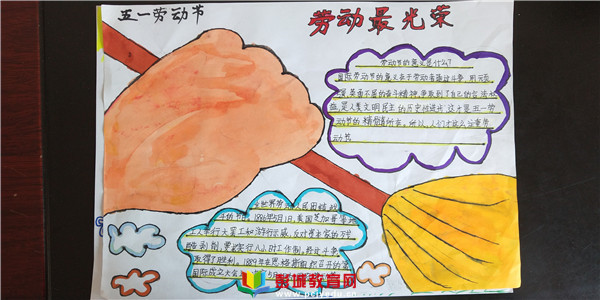 五一劳动节
劳动最光荣
劳动节的意义是什么?
国际劳动节的意义在于劳动者通过斗争,用顽
强、英勇不屈的奋斗精神,争取到了自己的合法权
益,是人类文明民主的历史性进步,这才是五一劳
动节的精髓所在。所以,人们才这么注重劳
动节
1886年5月1日,美国芝加哥
工人举行大罢工和游行示威,反对资本家的
剥削,要求实行八小时工作制。
取得了胜利。1889年在恩格斯组织召开的第
国际成立大会
聚城教育网